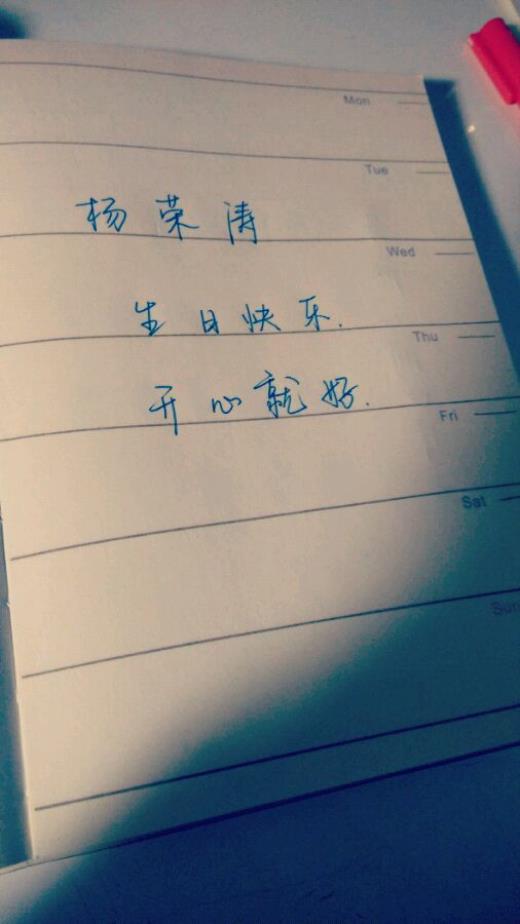 Mon
Tue
杨荣涛
Wed
生日快乐.
Thu
开心就好.
Fri
Sat
Sun